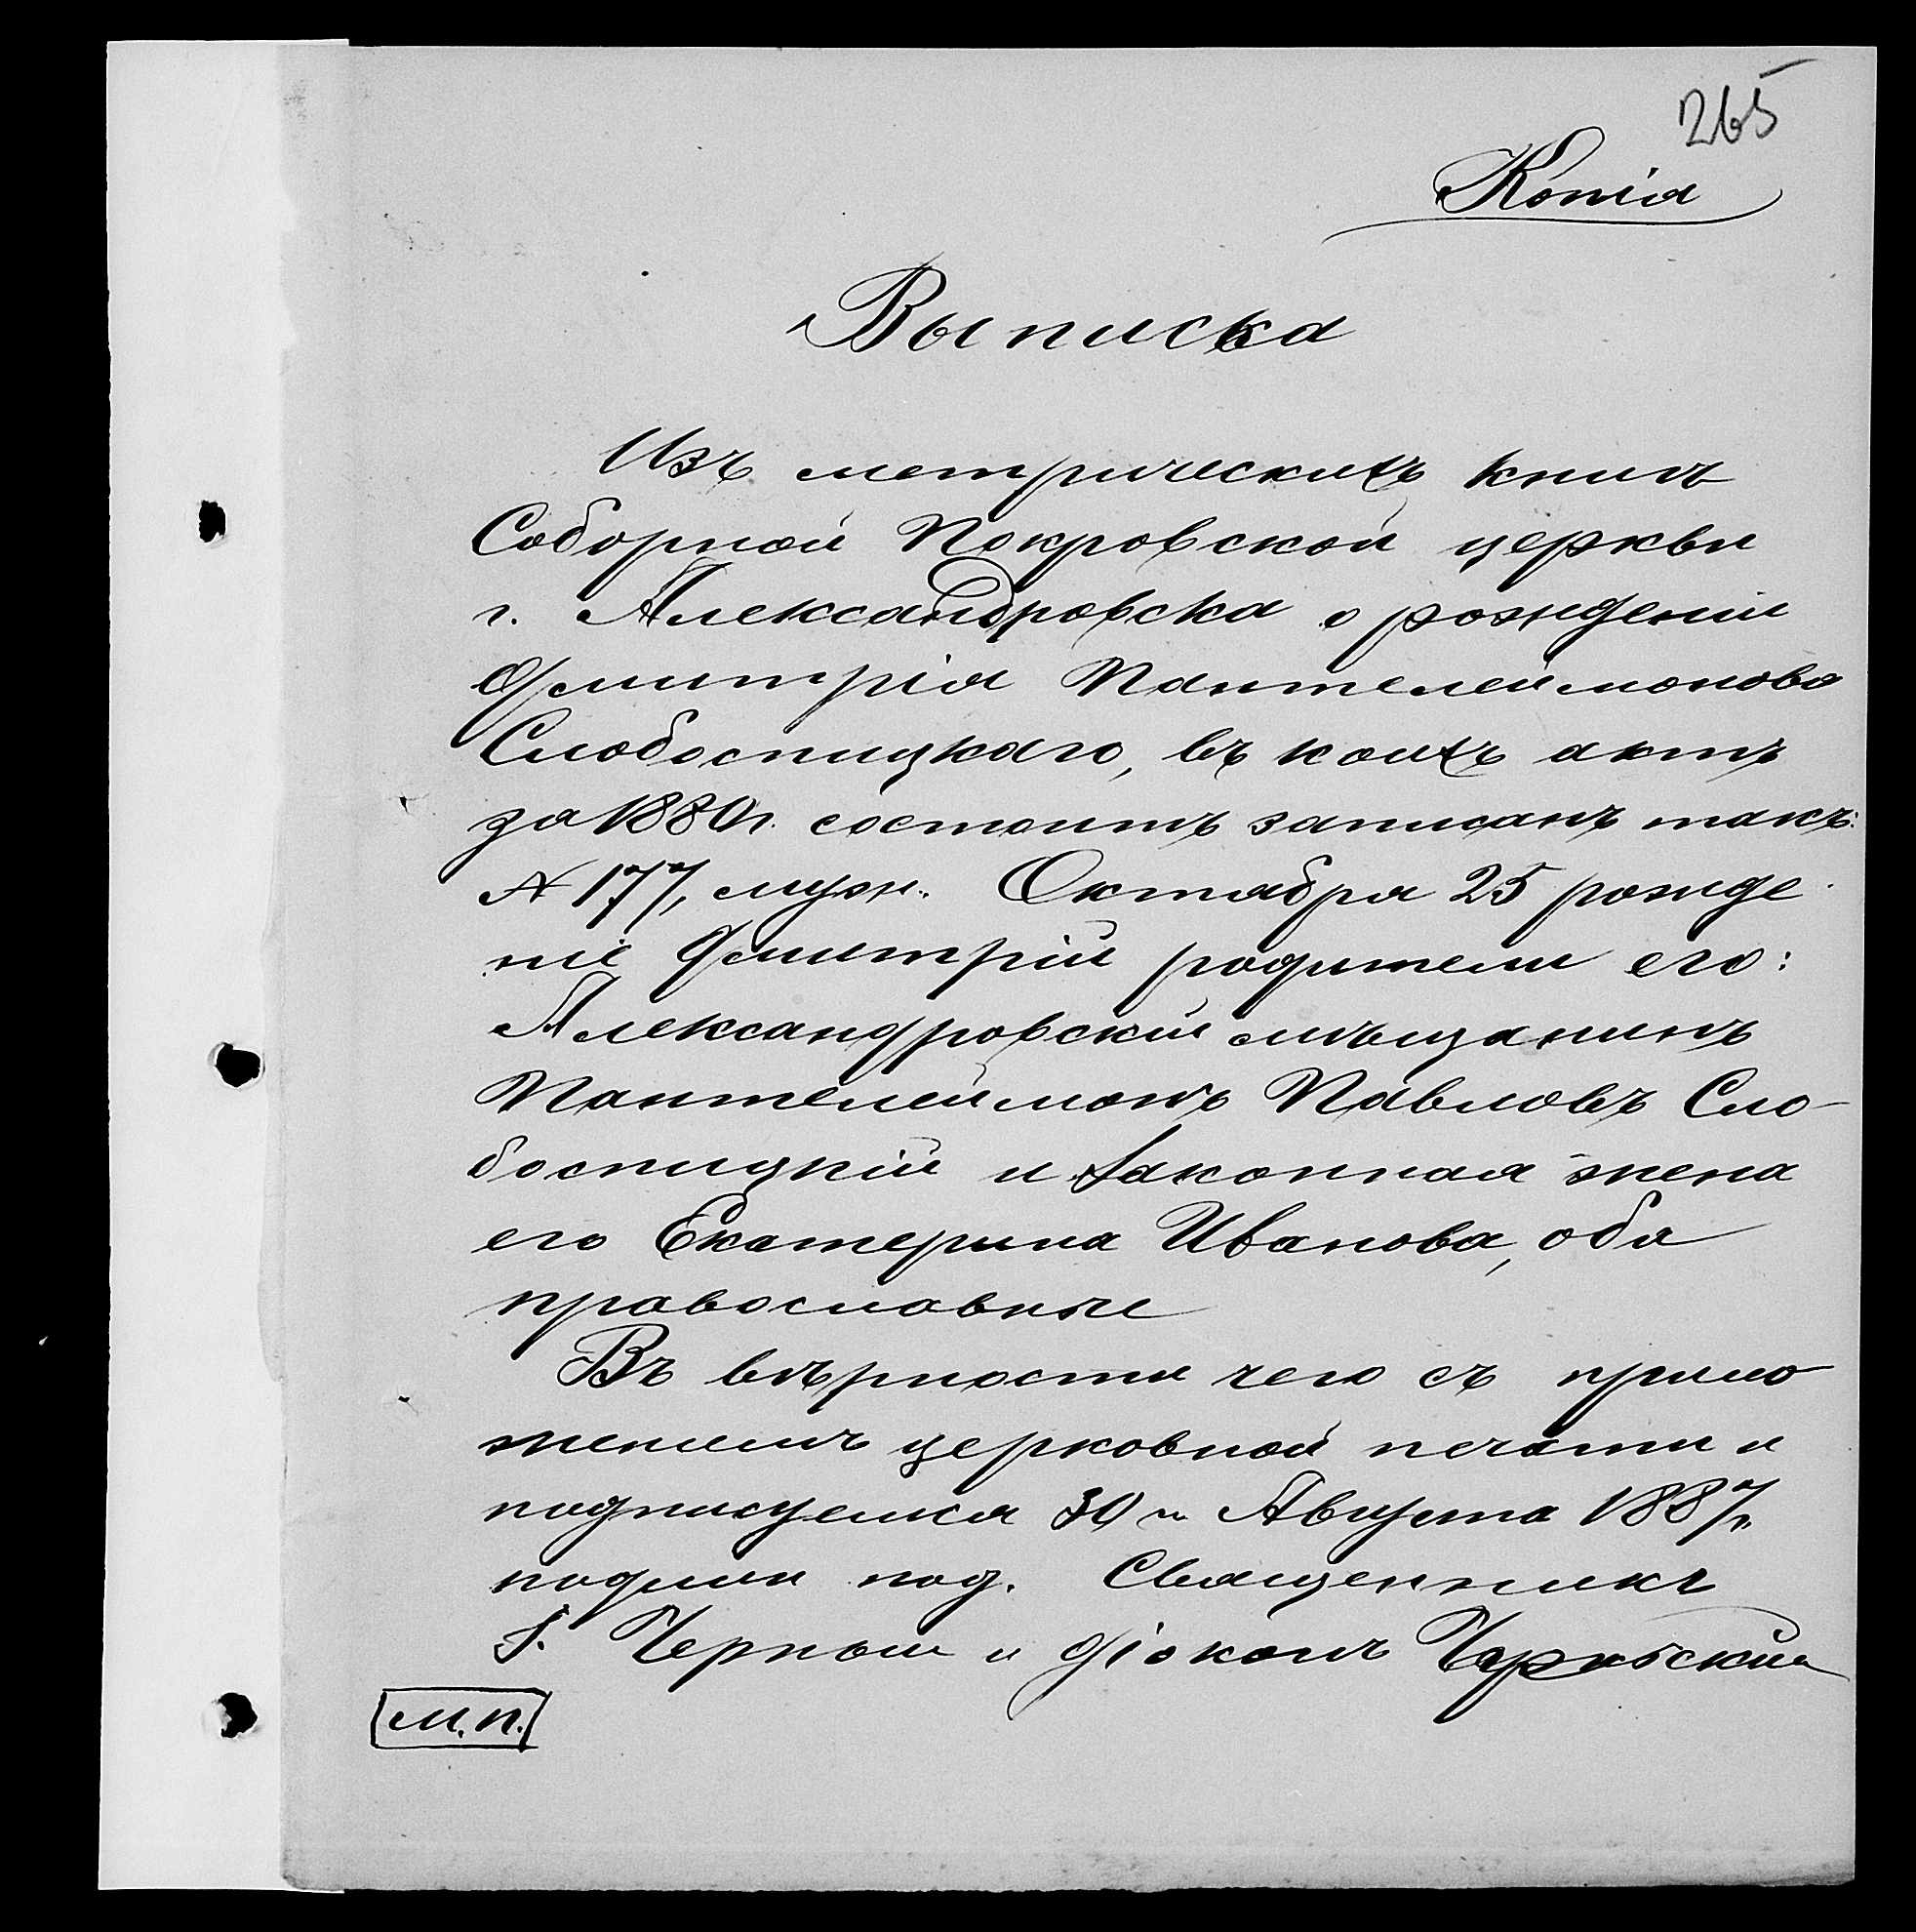 265
Копія
Выписка
Изъ метрическихъ книгъ
Соборной Покровской церкви
г. Александровска о рожденіи
Дмитрія Пантелеймонова
Слободспицкаго, въ коихъ актъ
за 1880 г. состоитъ записанъ такъ:
№ 177, муж. Октября 25 рожде
ніе Дмитрій родители его:
Александровскій мѣщанинъ
Пантелеймонъ Павловъ Сло-
боспицкій и законная жена
его Екатерина Иванова, оба
православные
Въ вѣрности чего съ прило
женіемъ церковной печати и
подписуемся 30 Августа 1887 г.
подлин под. Священникъ
І. Черный и діаконъ
М.П.